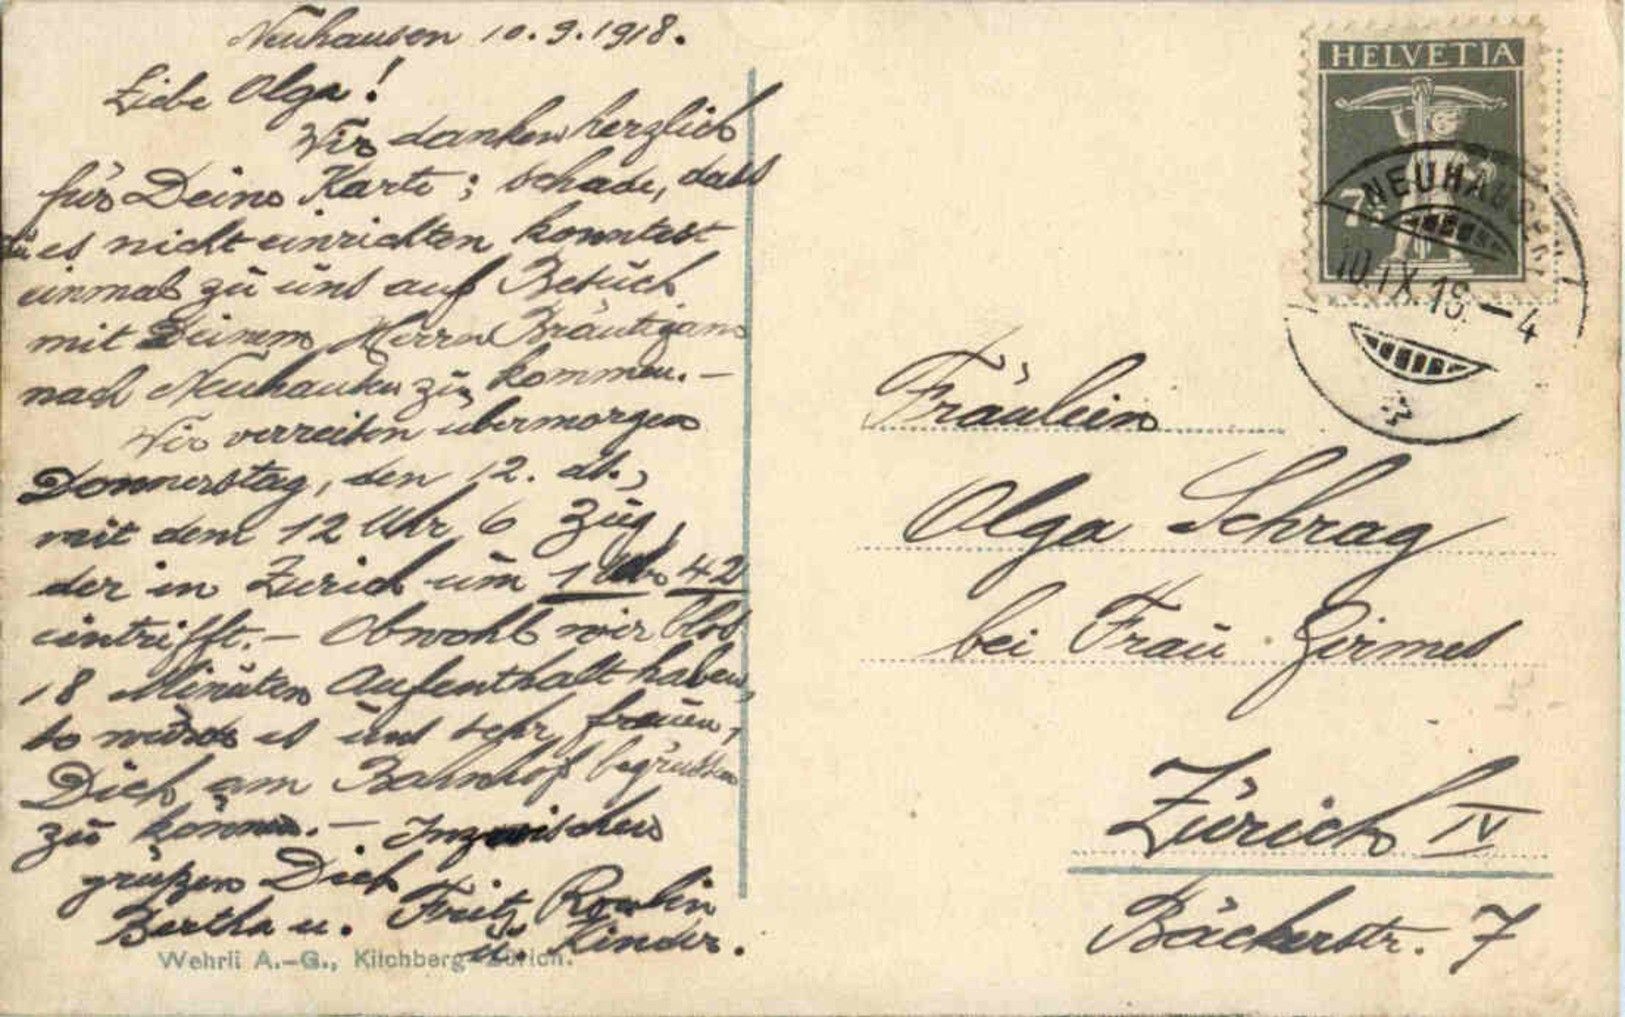 Neuhausen 10.9.1918.
Liebe Olga!
Wir danken herzlich
für Deine Karte; schade, dass
Du es nicht einrichten konntest
einmal zu uns auf Besuch
mit Deinem Herrn Bräutigam
nach Neuhausen zu kommen. –
Wir verreisen übermorgen
Donnerstag, den 12. ds.,
mit dem 12 Uhr 6 Zug,
der in Zürich um 1 Uhr 42
eintrifft. – Obwohl wir blos
18 Minuten Aufenthalt haben,
so würde es uns sehr freuen,
Dich am Bahnhof begrüssen
zu können. – Inzwischen
grüßen Dich
Bertha u. Fritz
u. Kinder.
Wehrli A.-G., Kilchberg-Zürich.
HELVETIA
7½
NEUHAUSEN
10.IX.18.–4
Fräulein
Olga Schrag
bei Frau Girmes
Zürich IV
Bäckerstr. 7